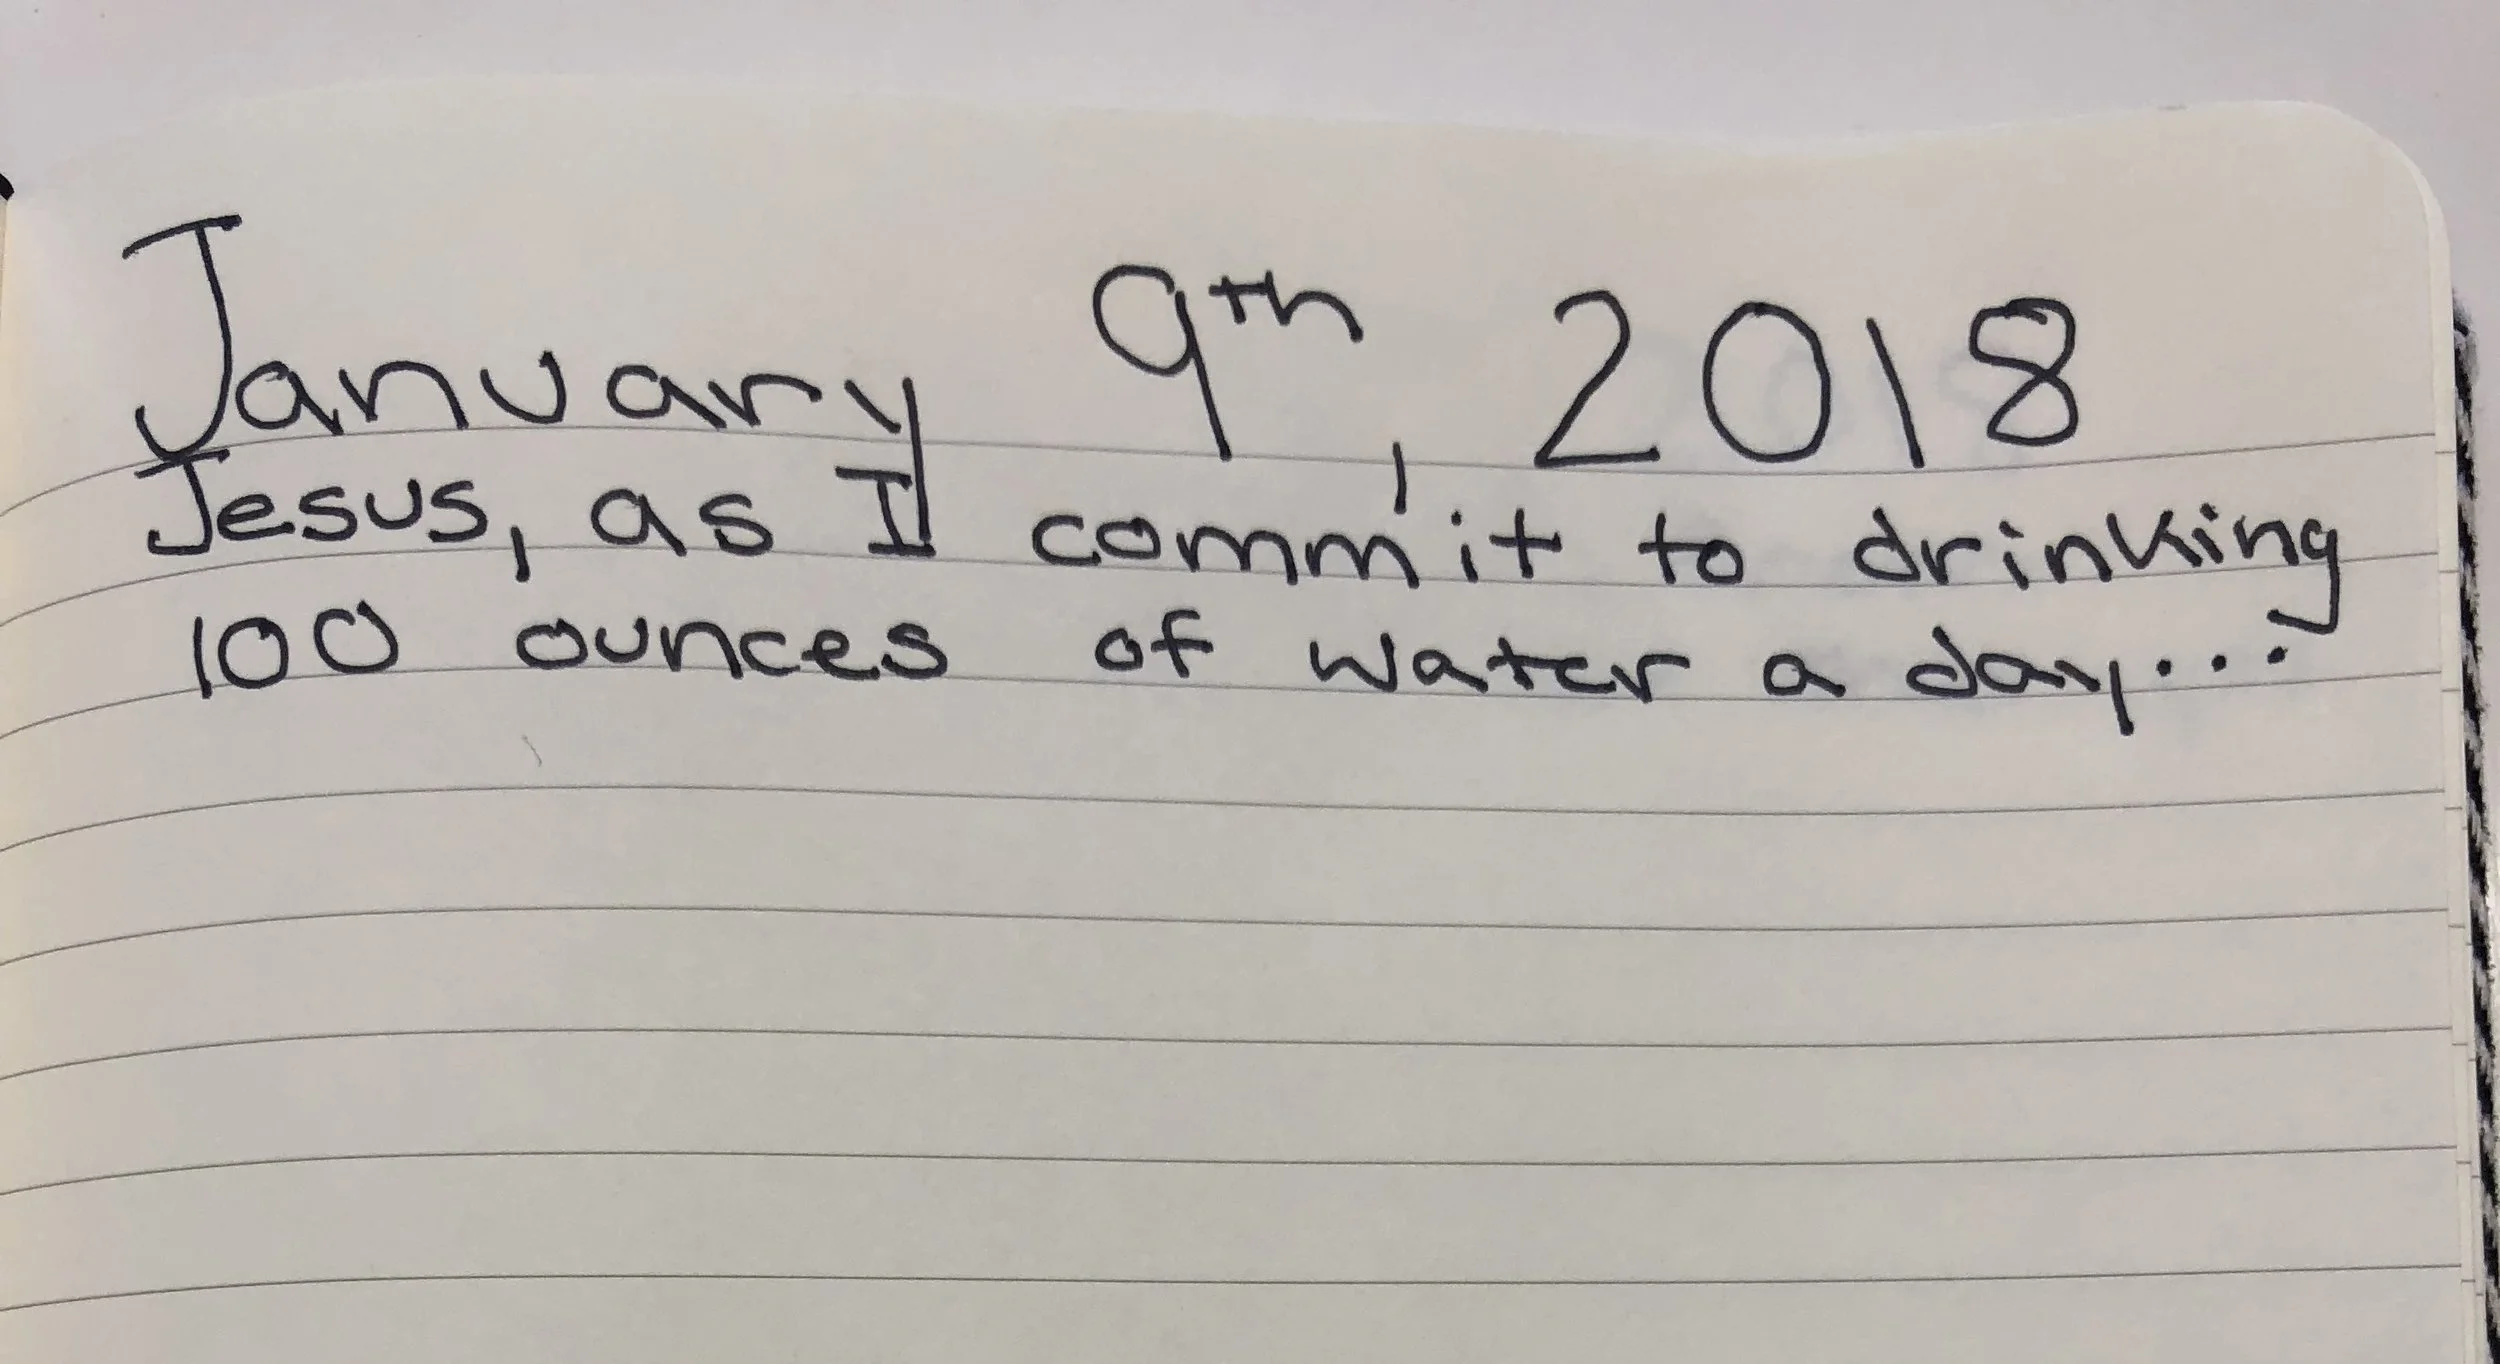 January 9th, 2018
Jesus, as I commit to drinking
100 ounces of water a day...